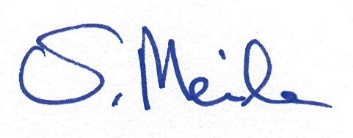 S. Meile